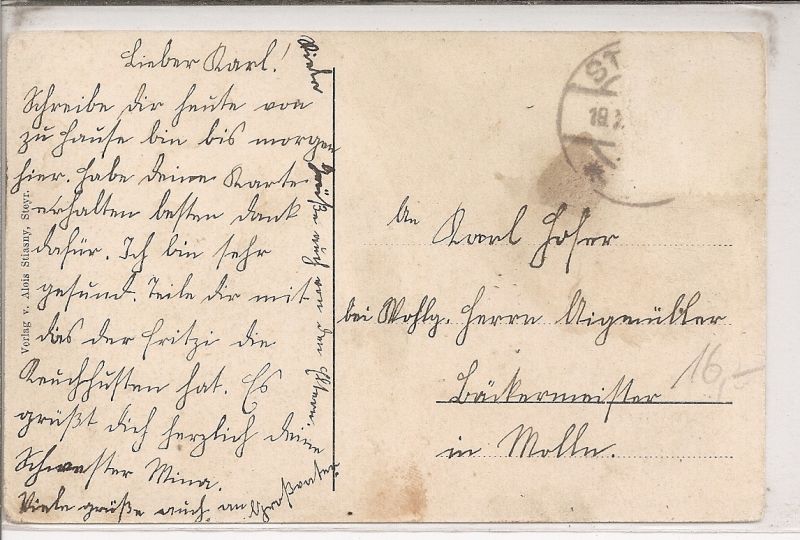 Lieber Karl!
Schreibe dir heute von
zu Hause bin bis morgen
hier. Habe deine Karte
erhalten besten Dank
dafür. Ich bin sehr
gesund. Teile dir mit
das der Fritzi die
Keuchhusten hat. Es
grüßt dich herzlich deine
Schwester Mina.
Viele grüße auch an Großvater
Viele Grüße auch von den Eltern.
Verlag v. Alois Stiasny, Steyr.
ST
19.
An
Karl Hofer
bei Wohlg. Herrn Aigmüller
Bäckermeister
in Molln.
16,-